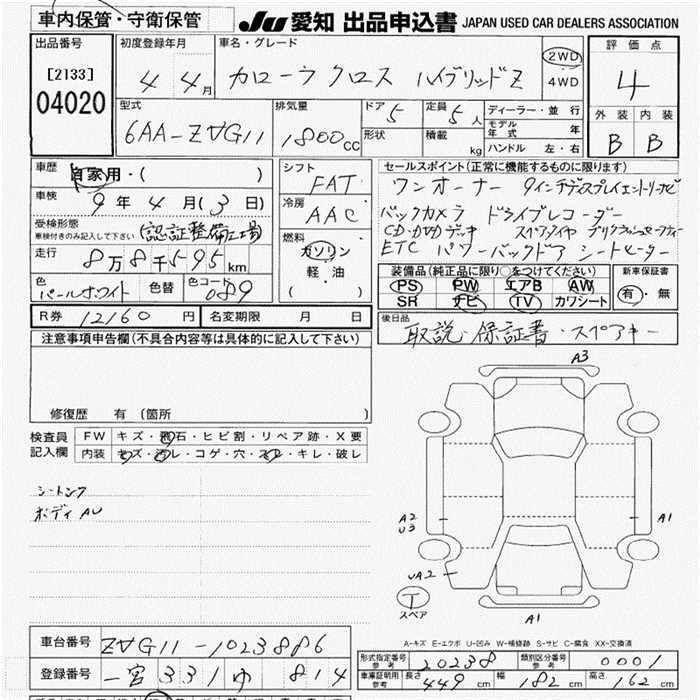 車内保管・守衛保管
JU 愛知 出品申込書 JAPAN USED CAR DEALERS ASSOCIATION
出品番号 [2133] 04020
初度登録年月 4 年 4月
車名・グレード カローラクロス ハイブリッドZ 2WD 4WD
評価点 4
外装 B 内装 B
型式 6AA-ZVG11
排気量 1800cc
ドア 5 形状
定員 5人 積載 kg
ディーラー・並行
モデル年式 年
ハンドル 左・右
車歴 自家用・( )
車検 9年 4月(3日)
受検形態 車検付きのみ記入して下さい (認証整備工場)
走行 8万8千595km
色 パールホワイト 色替 色コード 089
シフト FAT
冷房 AAC
燃料 ガソリン 軽油 ( )
セールスポイント(正常に機能するものに限ります)
ワンオーナー 9インチディスプレイ
バックカメラ ドライブレコーダー
CD・DVDデッキ スペアタイヤ
ETC パワーバックドア シートヒーター
装備品(純正品に限り○をつけてください) 新車保証書
PS PW エアB AW 有・無
SR ナビ TV カワシート
R券 12160円 名変期限 月 日
後日品 取説・保証書・スペアキー
注意事項申告欄(不具合内容等は具体的に記入して下さい)
修復歴 有 (箇所 )
検査員記入欄 FW キズ・飛石・ヒビ割・リペア跡・X要
内装 キズ・汚レ・コゲ・穴・スレ・キレ・破レ
ボディ AU
A3
A2 U3
A1
UA2
T スペア
A1
A-キズ E-エクボ U-凹み W-補修跡 S-サビ C-腐食 XX-交換済
車台番号 ZVG11-1023886
登録番号 一宮 331 ゆ 814
形式指定番号 参考 20238 類別区分番号 参考 0001
車庫証明用 参考 長さ 449cm 幅 182cm 高さ 162cm